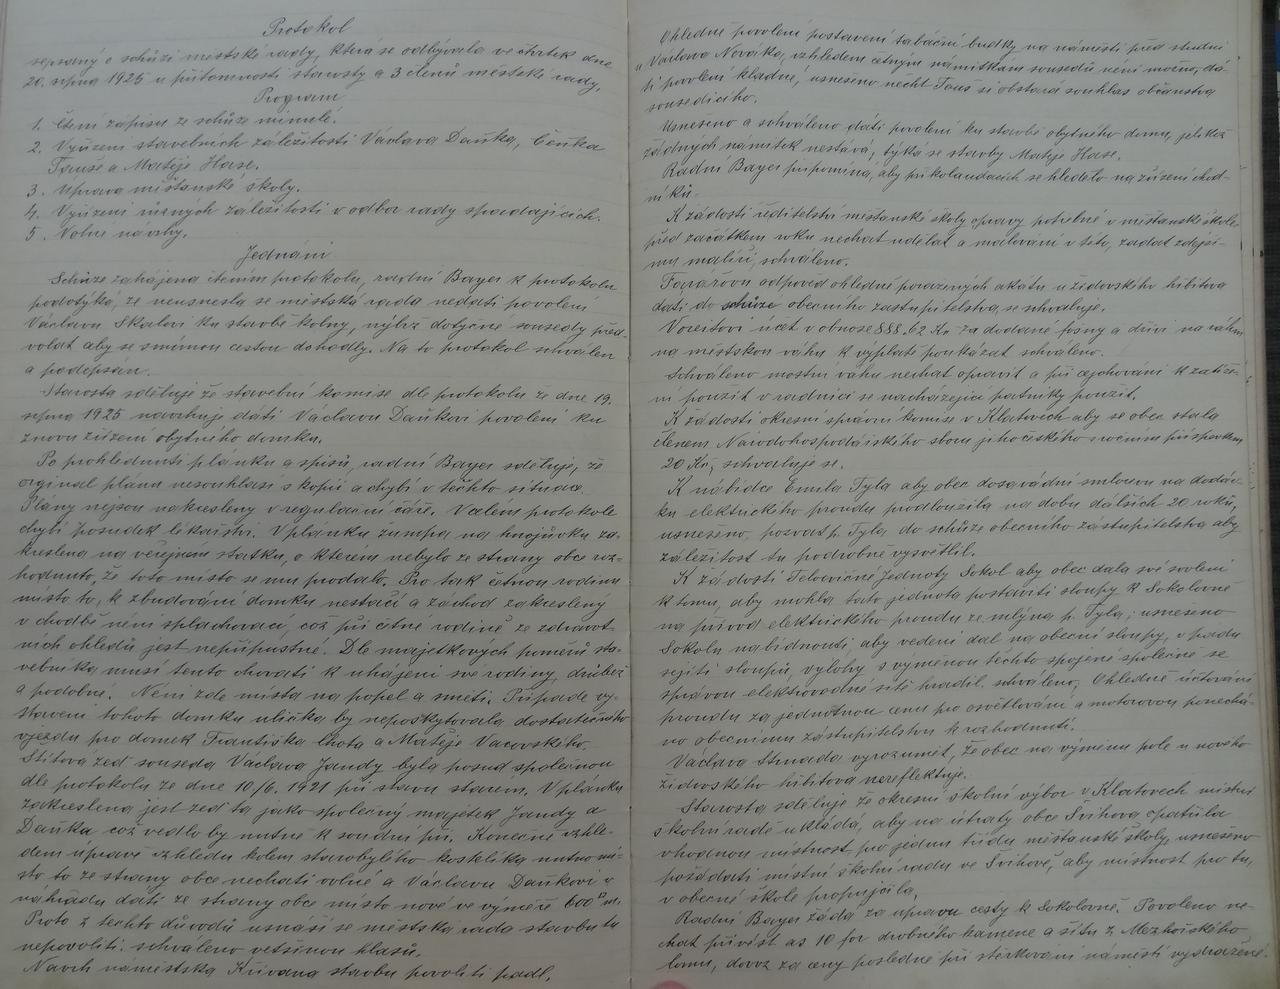 Protokol
sepsaný o schůzi městské rady, která se odbývala ve čtvrtek dne
20. srpna 1925 u přítomnosti starosty a 3 členů městské rady.
Program
1. Čtení zápisu ze schůze minulé.
2. Vyřízení stavebních záležitostí Václava Daňka, Čeňka
Touše a Matěje Hose.
3. Úprava měšťanské školy.
4. Vyřízení různých záležitostí v odbor rady spadajících.
5. Volné návrhy.
Jednání
Schůze zahájena čtením protokolu, radní Bayer k protokolu
podotýká, že neusnesla se městská rada nedati povolení
Václavu Skalovi ku stavbě kolny, nýbrž dotyčné sousedy před-
volat aby se smírnou cestou dohodly. Na to protokol schválen
a podepsán.
Starosta sděluje že stavební komise dle protokolu ze dne 19.
srpna 1925 navrhuje dáti Václavu Daňkovi povolení ku
znovu zřízení obytného domku.
Po prohlédnutí plánku a spisů, radní Bayer sděluje, že
orginal plánu nesouhlasí s kopií a chybí v těchto situace.
Plány nejsou nakresleny v regulační čáře. V celém protokole
chybí posudek lékařský. V plánku žumpa na hnojůvku za-
kreslena na veřejném statku, o kterém nebylo ze strany obce roz-
hodnuto, že toto místo se mu prodalo. Pro tak četnou rodinu
místo to, k zbudování domku nestačí a záchod zakreslený
v chodbě není splachovací, což při četné rodině ze zdravot-
ních ohledů jest nepřípustné. Dle majetkových poměrů sta-
vebníka musí tento chovati k uhájení své rodiny, drůbež
a podobné. Není zde místa na popel a smetí. Případě vy-
stavení tohoto domku ulička by neposkytovala dostatečného
vjezdu pro domek Františka Chota a Matěje Vacovského.
Štítová zeď souseda Václava Jandy byla posud společnou
dle protokolu ze dne 10/6. 1921 při stavu starém. V plánku
zakreslena jest zeď ta jako společný majetek Jandy a
Daňka což vedlo by nutně k soudní při. Konečně vzhle-
dem úpravě vzhledu kolem starobylého kostelíka nutno mí-
sto to ze strany obce nechati volné a Václavu Daňkovi v
náhradu dáti ze strany obce místo nové ve výměře 600 □m.
Proto z těchto důvodů usnáší se městská rada stavbu tu
nepovoliti. schváleno většinou hlasů.
Návrh náměstka Křivana stavbu povoliti padl.
Ohledně povolení postavení tabáční budky na náměstí před studní
u Václava Nováka, vzhledem četným námitkám sousedů není možno, dá-
ti povolení kladné, usneseno nechť Touš si obstará souhlas občanstva
sousedícího.
Usneseno a schváleno dáti povolení ku stavbě obytného domu, jelikož
žádných námitek nestává, týká se stavby Matěje Hose.
Radní Bayer připomíná, aby při kolaudacích se hledělo na zřízení chod-
níků.
K žádosti ředitelství měšťanské školy opravy potřebné v měšťanské škole
před začátkem roku nechat udělat a malování v této, zadat zdejší-
mu malíři, schváleno.
odpověd ohledně poražených akátů u židovského hřbitova
dáti do schůze obecního zastupitelstva, se schvaluje.
Voreitovi účet v obnose 888.62 Kč za dodané fošny a dříví na
na městskou váhu k výplatě poukázat schváleno.
Schváleno mostní váhu nechat opravit a při cejchování k zatíže-
ní použít v radnici se nacházející patníky použít.
K žádosti okresní správní komise v Klatovech aby se obec stala
členem Národohospodářského sboru jihočeského s ročním příspěvkem
20 Kč, schvaluje se.
K nabídce Emila Tyla aby obec dosavádní smlouvu na dodáv-
ku elektrického proudu prodloužila na dobu dalších 20 roků,
usneseno, pozvat p. Tyla do schůze obecního zástupitelstva aby
záležitost tu podrobně vysvětlil.
K žádosti Tělocvičné Jednoty Sokol aby obec dala své svolení
k tomu, aby mohla tato jednota postaviti sloupy k Sokolovně
na přívod elektrického proudu ze mlýna p. Tyla; usneseno
Sokolu nabídnouti, aby vedení dal na obecní sloupy, v pádu
sejití sloupů, výlohy s výměnou těchto spojené společně se
správou elektrovodné sítě hradil. schváleno. Ohledně účtování
proudu za jednotnou cenu pro osvětlování a motorovou ponechá-
no obecnímu zástupitelstvu k rozhodnutí.
Václava Strnada vyrozumět, že obec na výměnu pole u nového
židovského hřbitova nereflektuje.
Starosta sděluje že okresní školní výbor v Klatovech místní
školní radě ukládá, aby na útraty obce Švihova opatřila
vhodnou místnost pro jednu třídu měšťanské školy, usneseno
požádati místní školní radu ve Švihově, aby místnost pro tu,
v obecné škole propůjčila.
Radní Bayer žádá za úpravu cesty k Sokolovně. Povoleno ne-
chat přivést as 10 for drobného kamene a sítu z Mezhořského
lomu, dovoz za ceny posledně při štěrkování náměstí vydražené.